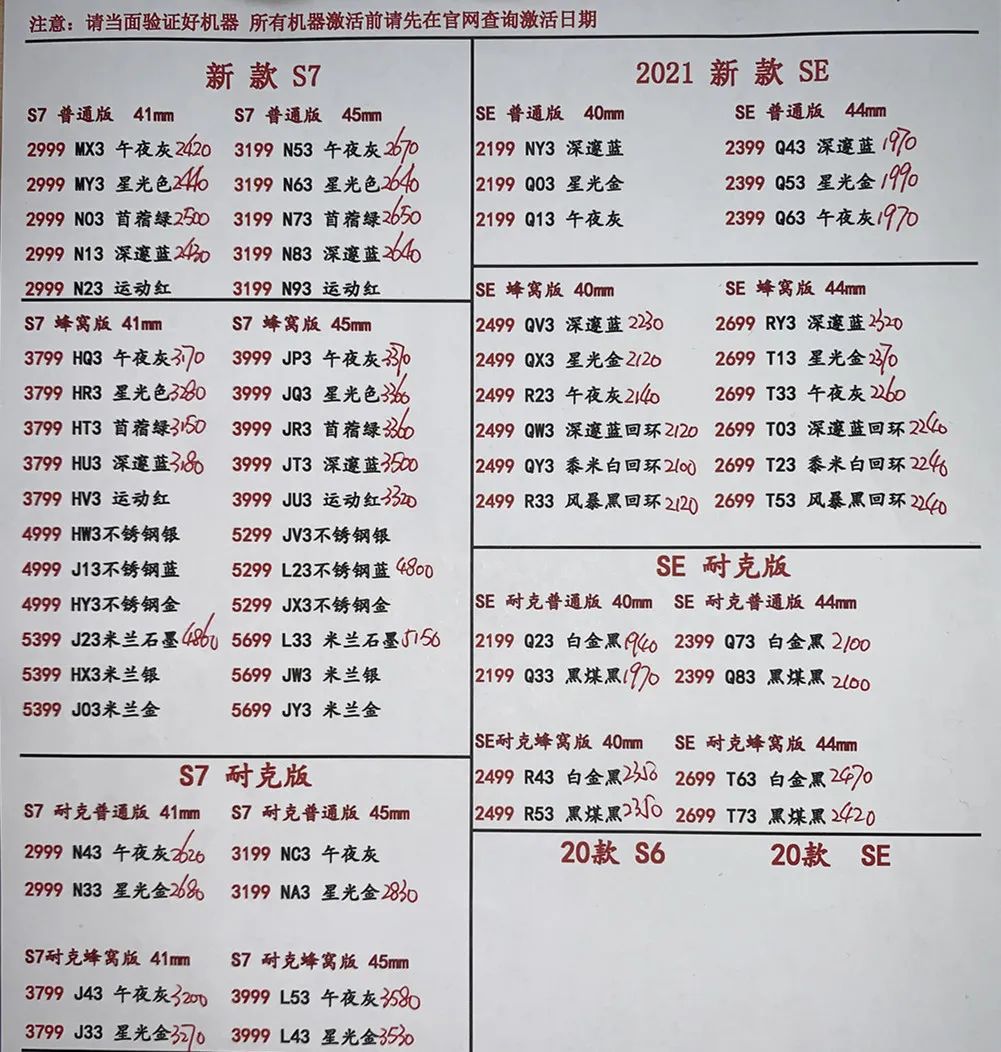 注意: 请当面验证好机器 所有机器激活前请先在官网查询激活日期
新 款 S7
S7 普通版 41mm S7 普通版 45mm
2999 MX3 午夜灰 2420 3199 N53 午夜灰 2670
2999 MY3 星光色 2440 3199 N63 星光色 2640
2999 N03 苜蓿绿 2500 3199 N73 苜蓿绿 2650
2999 N13 深邃蓝 2430 3199 N83 深邃蓝 2640
2999 N23 运动红 3199 N93 运动红
S7 蜂窝版 41mm S7 蜂窝版 45mm
3799 HQ3 午夜灰 3170 3999 JP3 午夜灰 3370
3799 HR3 星光色 3280 3999 JQ3 星光色 3366
3799 HT3 苜蓿绿 3150 3999 JR3 苜蓿绿 3360
3799 HU3 深邃蓝 3180 3999 JT3 深邃蓝 3500
3799 HV3 运动红 3999 JU3 运动红 3320
4999 HW3不锈钢银 5299 JV3不锈钢银
4999 J13不锈钢蓝 5299 L23不锈钢蓝 4800
4999 HY3不锈钢金 5299 JX3不锈钢金
5399 J23米兰石墨 4860 5699 L33 米兰石墨 5150
5399 HX3米兰银 5699 JW3 米兰银
5399 J03米兰金 5699 JY3 米兰金
S7 耐克版
S7 耐克普通版 41mm S7 耐克普通版 45mm
2999 N43 午夜灰 2620 3199 NC3 午夜灰
2999 N33 星光金 2680 3199 NA3 星光金 2830
S7耐克蜂窝版 41mm S7 耐克蜂窝版 45mm
3799 J43 午夜灰 3200 3999 L53 午夜灰 3580
3799 J33 星光金 3270 3999 L43 星光金 3530
2021 新 款 SE
SE 普通版 40mm SE 普通版 44mm
2199 NY3 深邃蓝 2399 Q43 深邃蓝 1970
2199 Q03 星光金 2399 Q53 星光金 1990
2199 Q13 午夜灰 2399 Q63 午夜灰 1970
SE 蜂窝版 40mm SE 蜂窝版 44mm
2499 QV3 深邃蓝 2230 2699 RY3 深邃蓝 2320
2499 QX3 星光金 2120 2699 T13 星光金 2370
2499 R23 午夜灰 2140 2699 T33 午夜灰 2260
2499 QW3 深邃蓝回环 2120 2699 T03 深邃蓝回环 2240
2499 QY3 黍米白回环 2100 2699 T23 黍米白回环 2240
2499 R33 风暴黑回环 2120 2699 T53 风暴黑回环 2240
SE 耐克版
SE 耐克普通版 40mm SE 耐克普通版 44mm
2199 Q23 白金黑 1940 2399 Q73 白金黑 2100
2199 Q33 黑煤黑 1970 2399 Q83 黑煤黑 2100
SE耐克蜂窝版 40mm SE 耐克蜂窝版 44mm
2499 R43 白金黑 2350 2699 T63 白金黑 2470
2499 R53 黑煤黑 2350 2699 T73 黑煤黑 2420
20款 S6 20款 SE